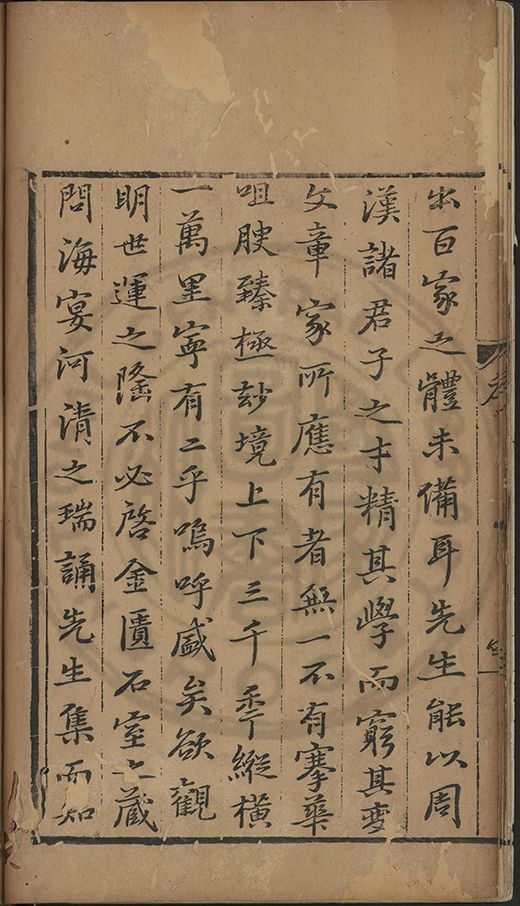 出百家之體未備耳先生能以周
漢諸君子之才精其學而窮其變
文章家所應有者無一不有搴華
咀腴臻極玅境上下三千季縱橫
一萬里寧有二乎嗚呼盛矣欲觀
明世運之隆不必啓金匱石室之藏
問海宴河清之瑞誦先生集而知